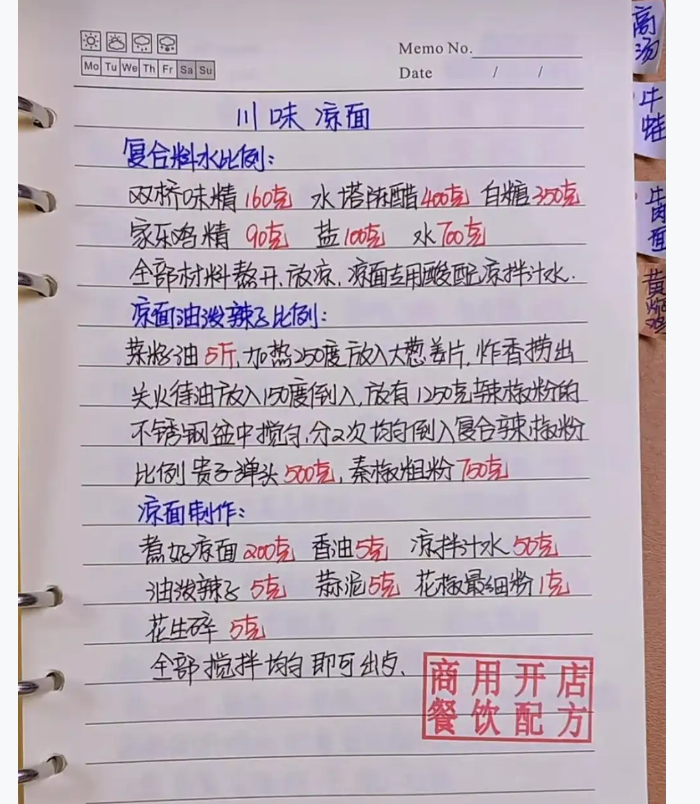 Memo No.
Mo Tu We Th Fr Sa Su
Date / /
川味凉面
复合料水比例:
双桥味精160克 水塔陈醋400克 白糖350克
家乐鸡精 90克 盐100克 水700克
全部材料熬开,放凉,凉面专用酸配凉拌汁水.
凉面油泼辣子比例:
菜籽油5斤,加热250度放入大葱姜片,炸香捞出
关火待油放入150度倒入,放有1250克辣椒粉的
不锈钢盆中搅匀,分2次均匀倒入复合辣椒粉
比例贵子弹头500克,秦椒粗粉750克
凉面制作:
煮好凉面200克 香油5克 凉拌汁水50克
油泼辣子5克 蒜泥5克 花椒最细粉1克
花生碎 5克
全部搅拌均匀即可出与、
商用开店
餐饮配方
高汤
牛蛙
牛肉面
黄焖鸡